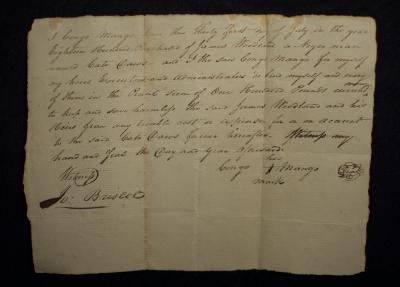 I Congo Mango have this Thirty first day of July in the year
Eighteen Hundred Purchased of James Woodland a Negro man
named Cato Caws and I the said Congo Mango for myself
my heirs Executors and Administrators do bind myself and every
of them in the Penal Sum of One Hundred Pounds current
to keep and save harmless the said James Woodland and his
Heirs from any trouble cost or expense for or on account
to the said Cato Caws forever hereafter. Witness my
hand and Seal the Day and Year aforesaid
his
Congo + Mango
mark
Witness
Jo: Briscoe